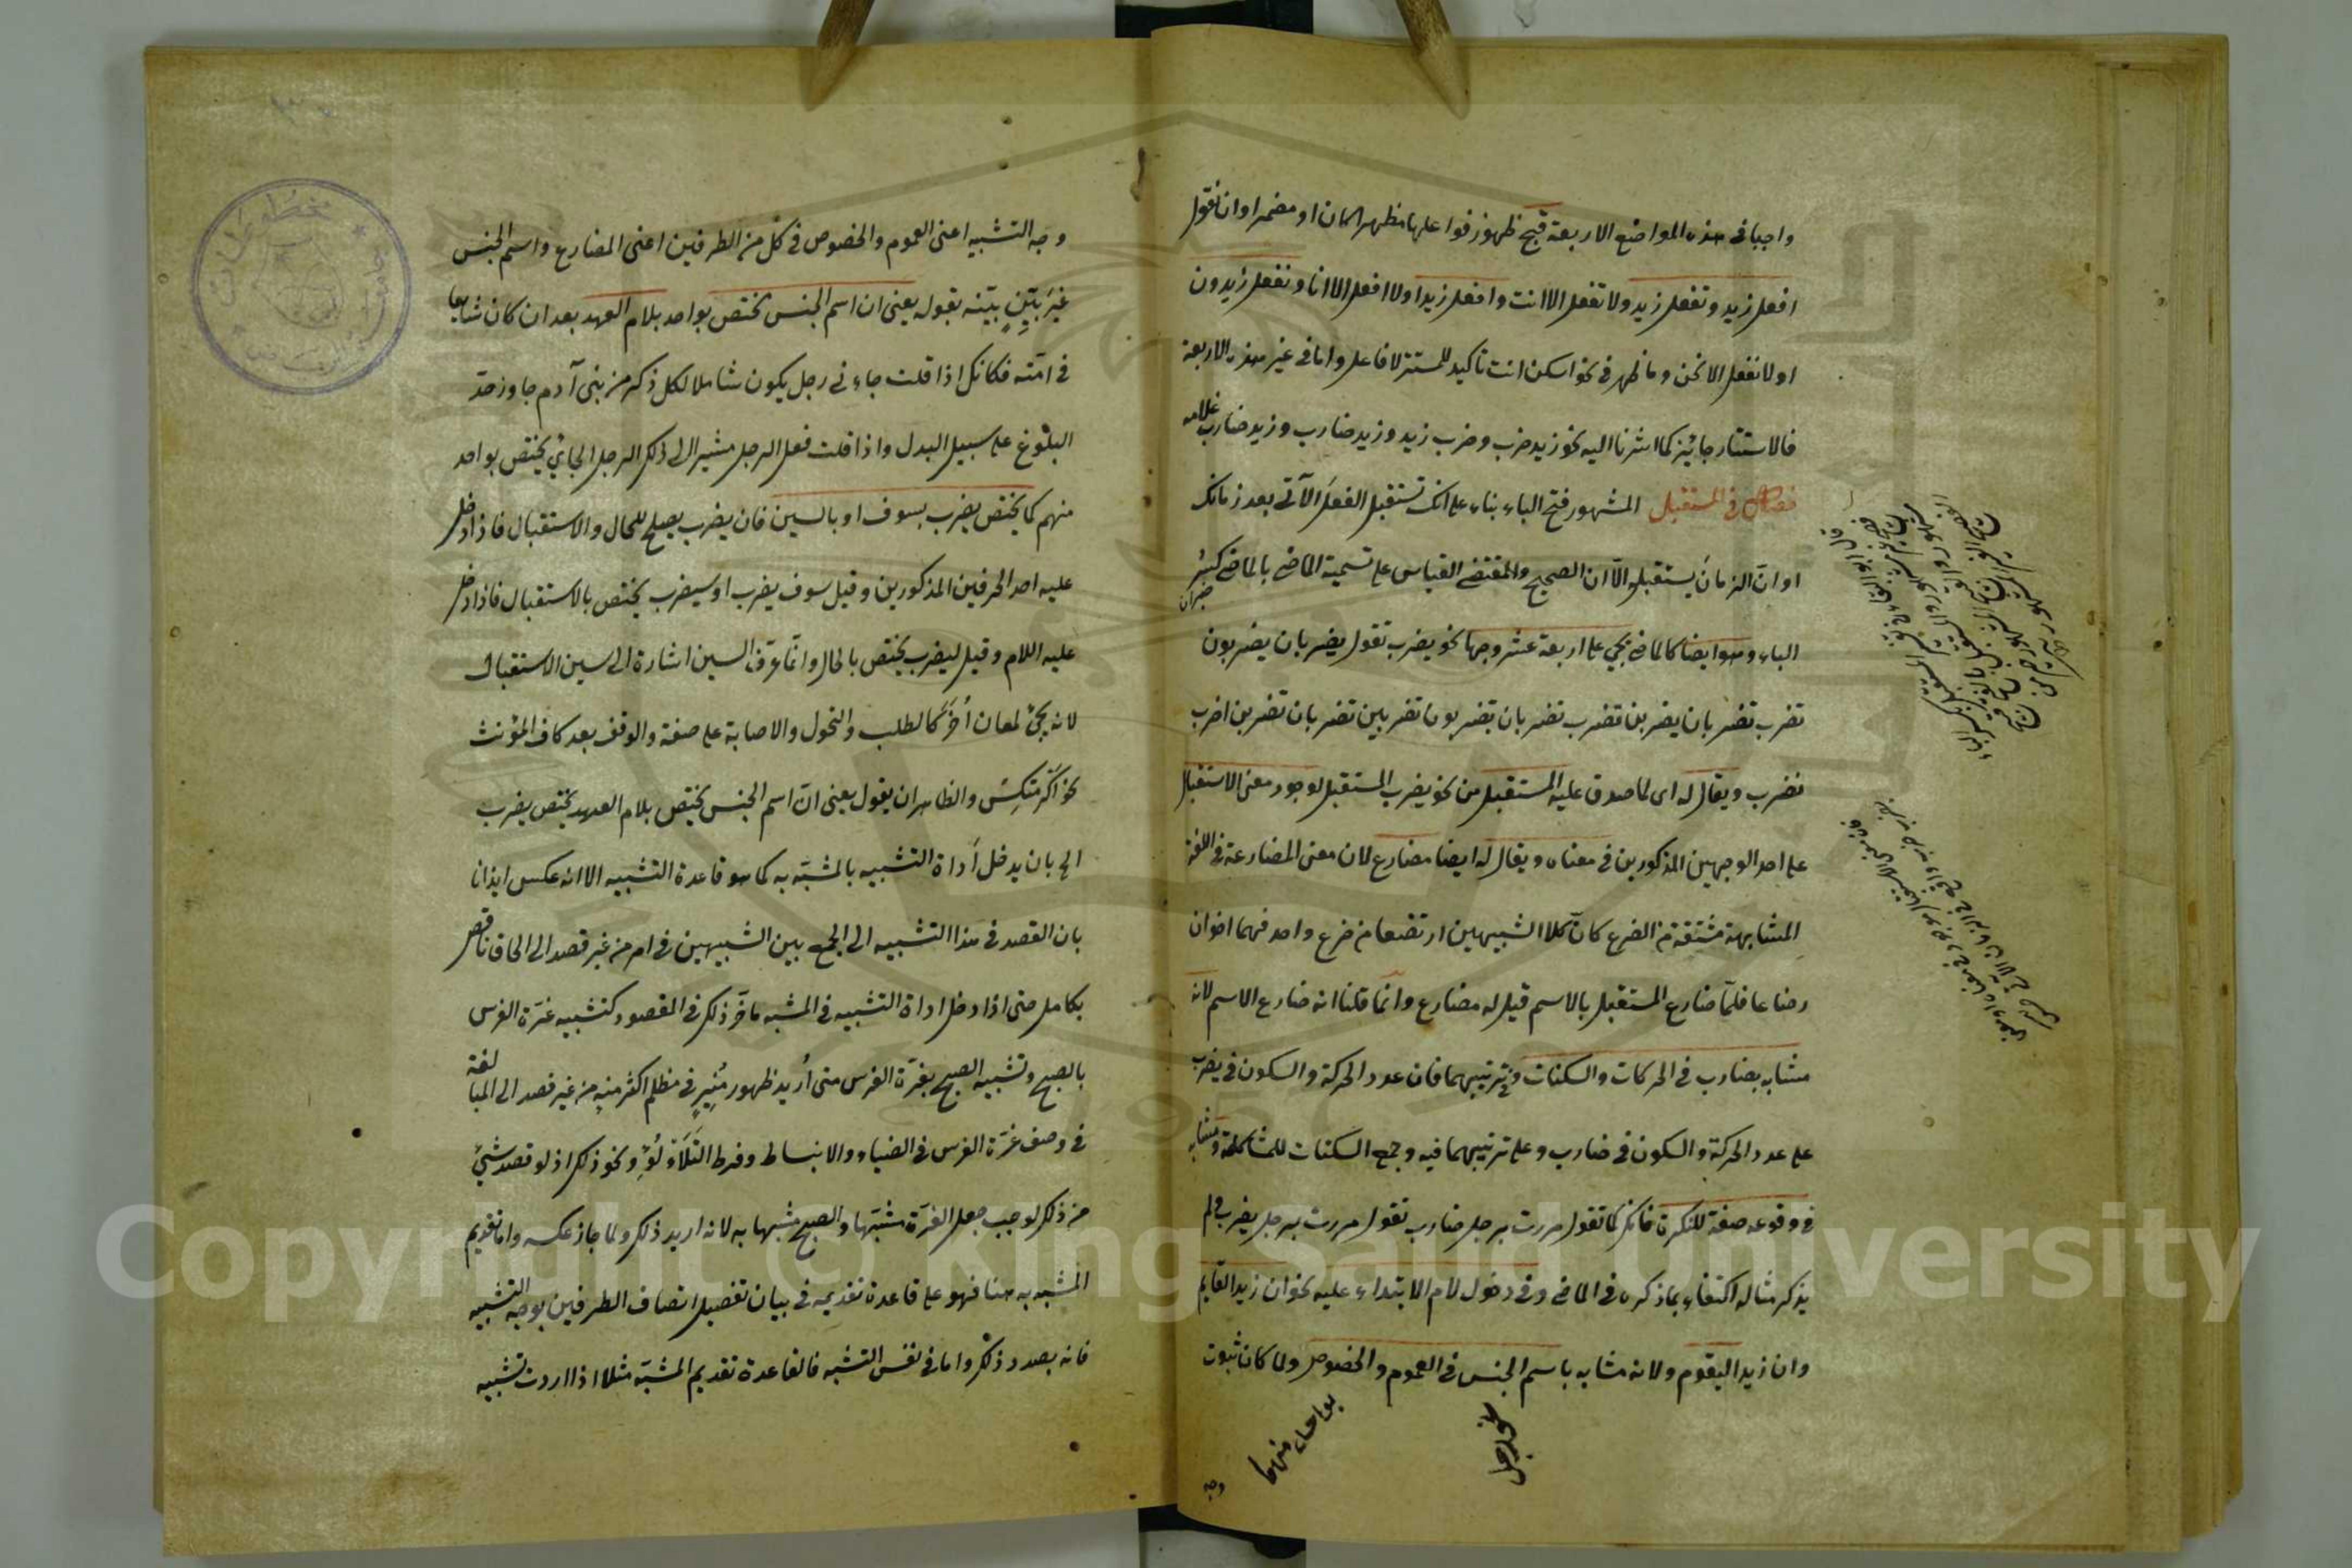 واجبا فى هذه المواضع الاربعة قبح ظهور فواعلها مظهرا كان او مضمرا وان نقول
افعل زيد وتفعل زيد ولا تفعل الا انت وافعل زيدا ولا افعل الا انا ونفعل زيدون
او لا نفعل الا نحن وما ظهر فى نحو اسكن انت تاكيد للمستتر لا فاعل واما فى غير هذه الاربعة
فالاستتار جائز كما اشرنا اليه نحو زيد ضرب وضرب زيد وزيد ضارب وزيد ضارب غلامه
فصل فى المستقبل المشهور فتح الباء بناء على انك تستقبل الفعل الآتى بعد زمانك
او ان الزمان يستقبله الا ان الصحيح والمقتضى القياس على تسمية الماضى بالماضى كسر
الباء وهو ايضا كالماضى يجئ على اربعة عشر وجها نحو يضرب تقول يضربان يضربون
تضرب تضربان يضربن تضرب تضربان تضربون تضربين تضربان تضربن اضرب
نضرب ويقال له اى لما صدق عليه المستقبل من نحو يضرب المستقبل لوجود معنى الاستقبال
على احد الوجهين المذكورين فى معناه ويقال له ايضا مضارع لان معنى المضارعة فى اللغة
المشابهة مشتقة من الضرع كان كلا الشبيهين ارتضعا من ضرع واحد فهما اخوان
رضاعا فلما ضارع المستقبل بالاسم قيل له مضارع وانما قلنا انه ضارع الاسم لانه
مشابه بضارب فى الحركات والسكنات وترتيبهما فان عدد الحركة والسكون فى يضرب
على عدد الحركة والسكون فى ضارب وعلى ترتيبهما فيه وجمع السكنات للمشاكلة ومشابه
فى وقوعه صفة للنكرة فانك كما تقول مررت برجل ضارب تقول مررت برجل يضرب ولم
يذكر مثاله اكتفاء بما ذكره فى الماضى وفى دخول لام الابتداء عليه نحو ان زيدا لقايم
وان زيدا ليقوم ولانه مشابه باسم الجنس فى العموم والخصوص ولما كان ثبوت
نحو رجل
منهما
وجه
وجه التشبيه اعنى العموم والخصوص فى كل من الطرفين اعنى المضارع واسم الجنس
غير بين بينه بقوله يعنى ان اسم الجنس يختص بواحد بلام العهد بعد ان كان شايعا
فى امته فكانك اذا قلت جاءنى رجل يكون شاملا لكل ذكر من بنى آدم جاوز حد
البلوغ على سبيل البدل واذا قلت فعل الرجل مشيرا الى ذلك الرجل الجائى يختص بواحد
منهم كما يختص يضرب بسوف او بالسين فان يضرب يصلح للحال والاستقبال فاذا دخل
عليه احد الحرفين المذكورين وقيل سوف يضرب او سيضرب يختص بالاستقبال فاذا دخل
عليه اللام وقيل ليضرب يختص بالحال وانما عرف السين اشارة الى سين الاستقبال
لانه يجئ لمعان أخر كالطلب والتحول والاصابة على صفة والوقف بعد كاف المؤنث
نحو اكرمتكس والظاهر ان يقول يعنى ان اسم الجنس يختص بلام العهد يختص يضرب
الخ بان يدخل أداة التشبيه بالمشبه به كما هو قاعدة التشبيه الا انه عكس ايذانا
بان القصد فى هذا التشبيه الى الجمع بين الشبيهين فى امر من غير قصد الى الحاق ناقص
بكامل حتى اذا دخل اداة التشبيه فى المشبه ما فر ذلك فى المقصود كتشبيه غرة الفرس
بالصبح وتشبيه الصبح بغرة الفرس متى أريد ظهور منير فى مظلم اكثر منه من غير قصد الى المبالغة
فى وصف غرة الفرس فى الضياء والانبساط وفرط التلألؤ ونحو ذلك اذ لو قصد شئ
من ذلك لوجب جعل الغرة مشبها والصبح مشبها به لانه اريد ذلك ولما جاز عكسه واما تقديم
المشبه به هنا فهو على قاعدة تقديمه فى بيان تفصيل اتصاف الطرفين بوجه التشبيه
فانه بصدد ذلك واما فى نفس التشبه فالقاعدة تقديم المشبه مثلا اذا اردت تشبيه
مخطوطات
Copyright © King Saud University